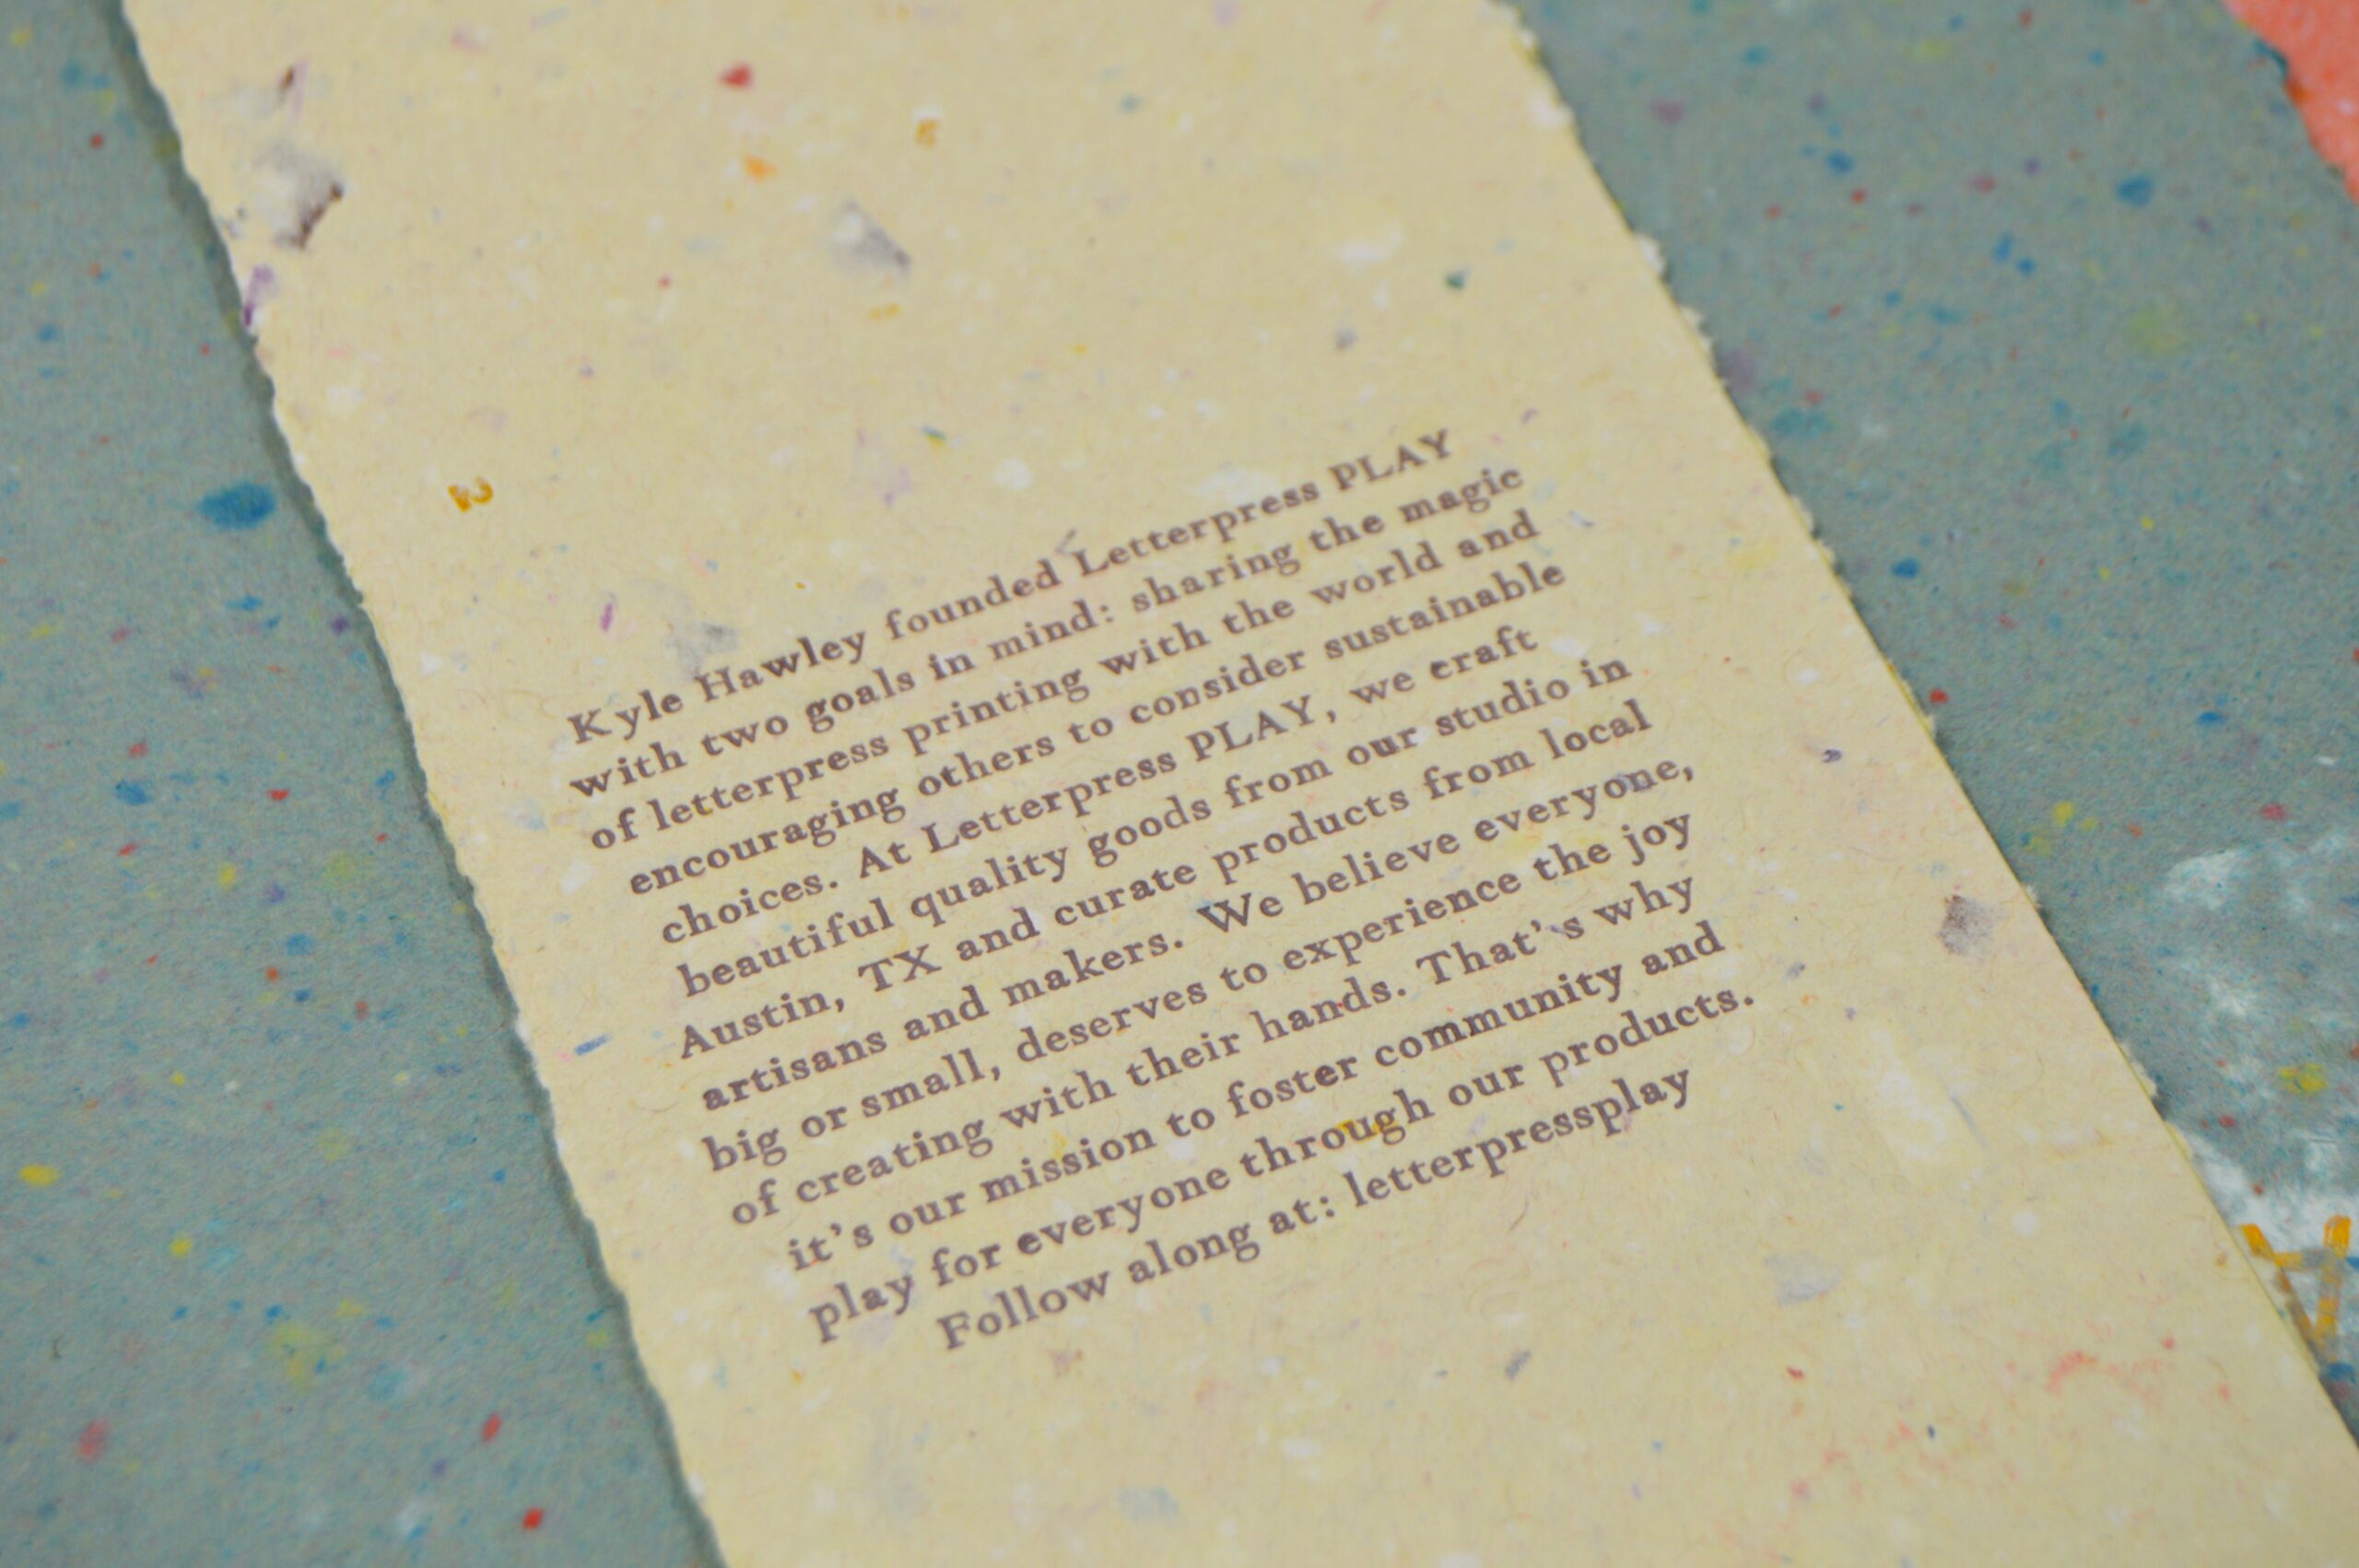 Kyle Hawley founded Letterpress PLAY
with two goals in mind: sharing the magic
of letterpress printing with the world and
encouraging others to consider sustainable
choices. At Letterpress PLAY, we craft
beautiful quality goods from our studio in
Austin, TX and curate products from local
artisans and makers. We believe everyone,
big or small, deserves to experience the joy
of creating with their hands. That's why
it's our mission to foster community and
play for everyone through our products.
Follow along at: letterpressplay